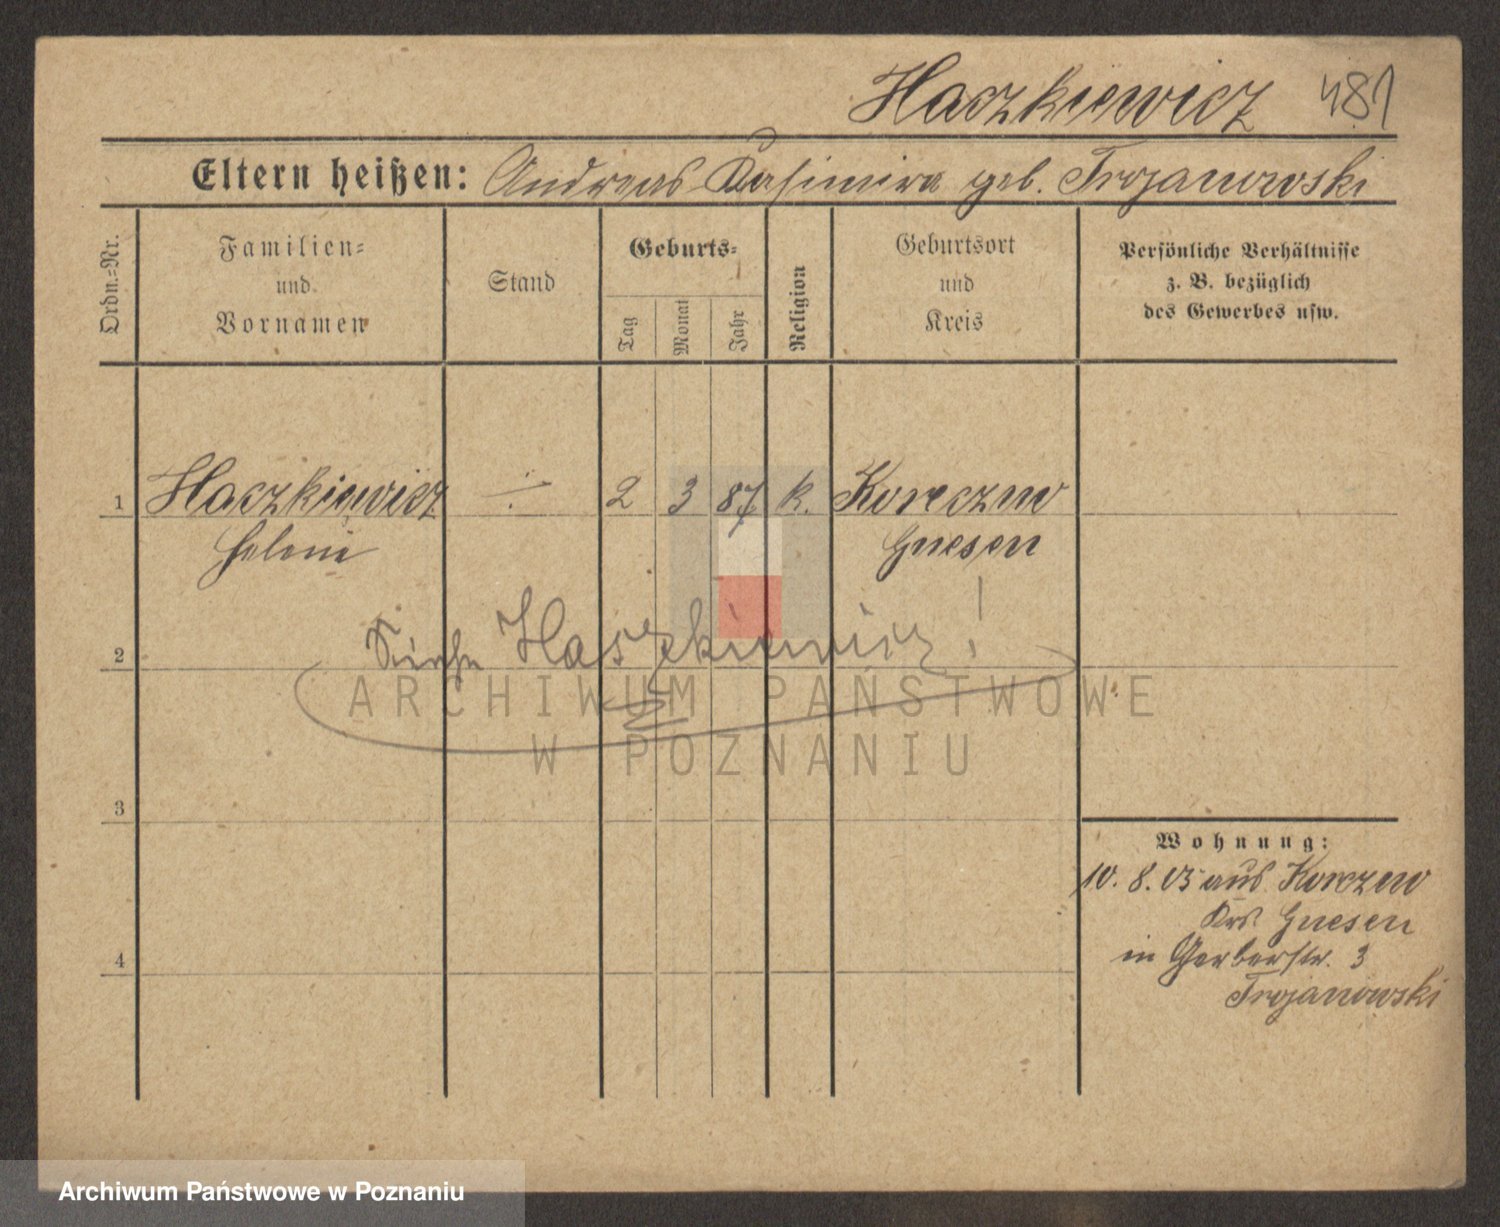 Haczkiewicz 481
Eltern heißen: Andreas Kasimira geb. Trojanowski
Ordn.=Nr.
Familien=
und
Vornamen
Stand
Geburts=
Tag
Monat
Jahr
Religion
Geburtsort
und
Kreis
Persönliche Verhältnisse
z. B. bezüglich
des Gewerbes usw.
1 Haczkiewicz ÷ 2 3 87 k. Korczew
Helene Gnesen
2 Siehe Haszkiewicz!
ARCHIWUM PAŃSTWOWE
W POZNANIU
3
Wohnung:
10. 8. 05 aus Korczew
Krs Gnesen
4
in Gerberstr. 3
Trojanowski
Archiwum Państwowe w Poznaniu